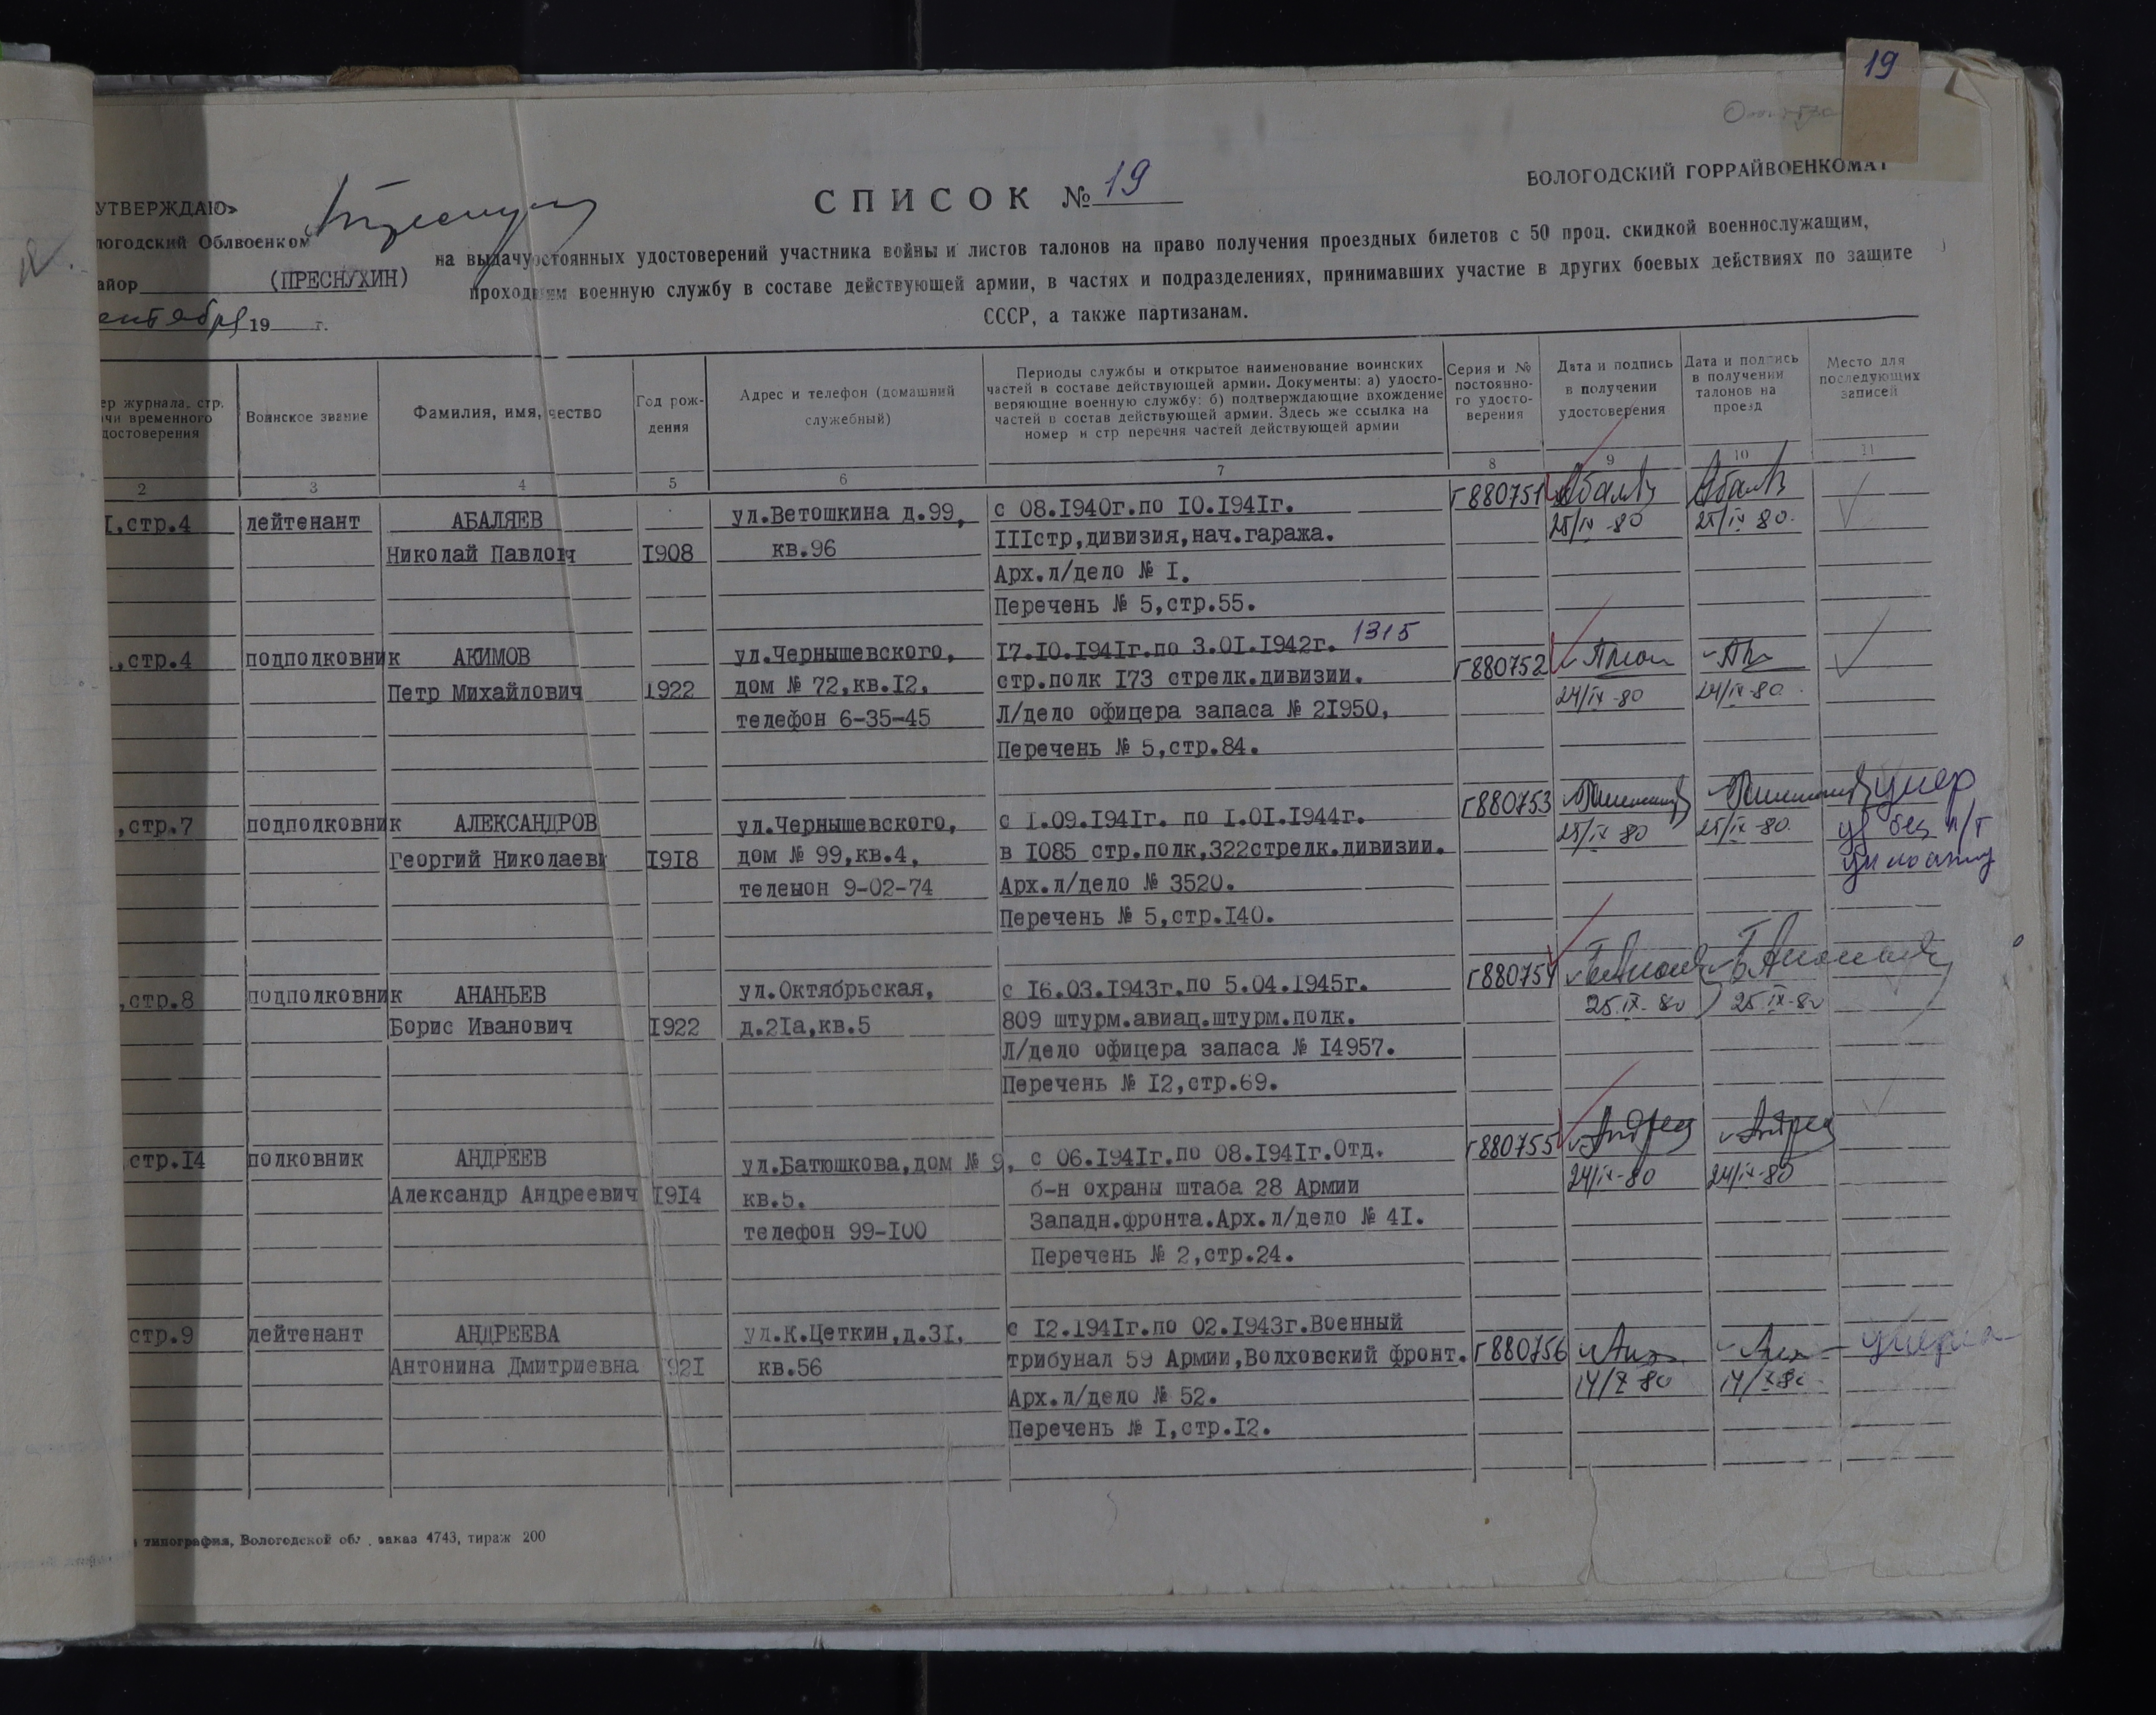 19
ВОЛОГОДСКИЙ ГОРРАЙВОЕНКОМАТ
УТВЕРЖДАЮ»
логодский Облвоенком
айор (ПРЕСНУХИН)
ентября 19 г.
СПИСОК № 19
на выдачу остоянных удостоверений участника войны и листов талонов на право получения проездных билетов с 50 проц. скидкой военнослужащим,
проходившим военную службу в составе действующей армии, в частях и подразделениях, принимавших участие в других боевых действиях по защите
СССР, а также партизанам.
ер журнала, стр.
ачи временного
достоверения
Воинское звание
Фамилия, имя, чество
Год рож-
дения
Адрес и телефон (домашний
служебный)
Периоды службы и открытое наименование воинских
частей в составе действующей армии. Документы: а) удосто-
веряющие военную службу: б) подтверждающие вхождение
частей в состав действующей армии. Здесь же ссылка на
номер и стр перечня частей действующей армии
Серия и №
постоянно-
го удосто-
верения
Дата и подпись
в получении
удостоверения
Дата и подпись
в получении
талонов на
проезд
Место для
последующих
записей
2 3 4 5 6 7 8 9 10 11
I,стр.4 лейтенант АБАЛЯЕВ ул.Ветошкина д.99, с 08.I940г.по I0.I94Iг. Г880751
Николай Павлоич I908 кв.96 IIIстр,дивизия,нач.гаража. 25/IX-80 25/IX 80.
Арх.л/дело № I.
Перечень № 5,стр.55.
,стр.4 подполковник АКИМОВ ул.Чернышевского, I7.I0.I94Iг.по 3.0I.I942г. 1315 Г880752
Петр Михайлович I922 дом № 72,кв.I2, стр.полк I73 стрелк.дивизии. 24/IX-80 24/IX-80.
телефон 6-35-45 Л/дело офицера запаса № 2I950,
Перечень № 5,стр.84.
,стр.7 подполковник АЛЕКСАНДРОВ ул.Чернышевского, с I.09.I94Iг. по I.0I.I944г. Г880753 умер
Георгий Николаеви I9I8 дом № 99,кв.4, в I085 стр.полк,322стрелк.дивизии. 25/IX 80 25/IX-80.
телешон 9-02-74 Арх.л/дело № 3520.
Перечень № 5,стр.I40.
,стр.8 подполковник АНАНЬЕВ ул.Октябрьская, с I6.03.I943г.по 5.04.I945г. Г880754
Борис Иванович I922 д.2Iа,кв.5 809 штурм.авиац.штурм.полк. 25.IX-80 25.IX-80
Л/дело офицера запаса № I4957.
Перечень № I2,стр.69.
стр.I4 полковник АНДРЕЕВ ул.Батюшкова,дом № 9, с 06.I94Iг.по 08.I94Iг.Отд. Г880755
Александр Андреевич I9I4 кв.5. б-н охраны штаба 28 Армии 24/IX-80 24/IX-80
телефон 99-I00 Западн.фронта.Арх.л/дело № 4I.
Перечень № 2,стр.24.
стр.9 лейтенант АНДРЕЕВА ул.К.Цеткин,д.3I, с I2.I94Iг.по 02.I943г.Военный Г880756 умерла
Антонина Дмитриевна I92I кв.56 трибунал 59 Армии,Волховский фронт. 14/X-80 14/X-80
Арх.л/дело № 52.
Перечень № I,стр.I2.
типография, Вологодской обл. заказ 4743, тираж 200